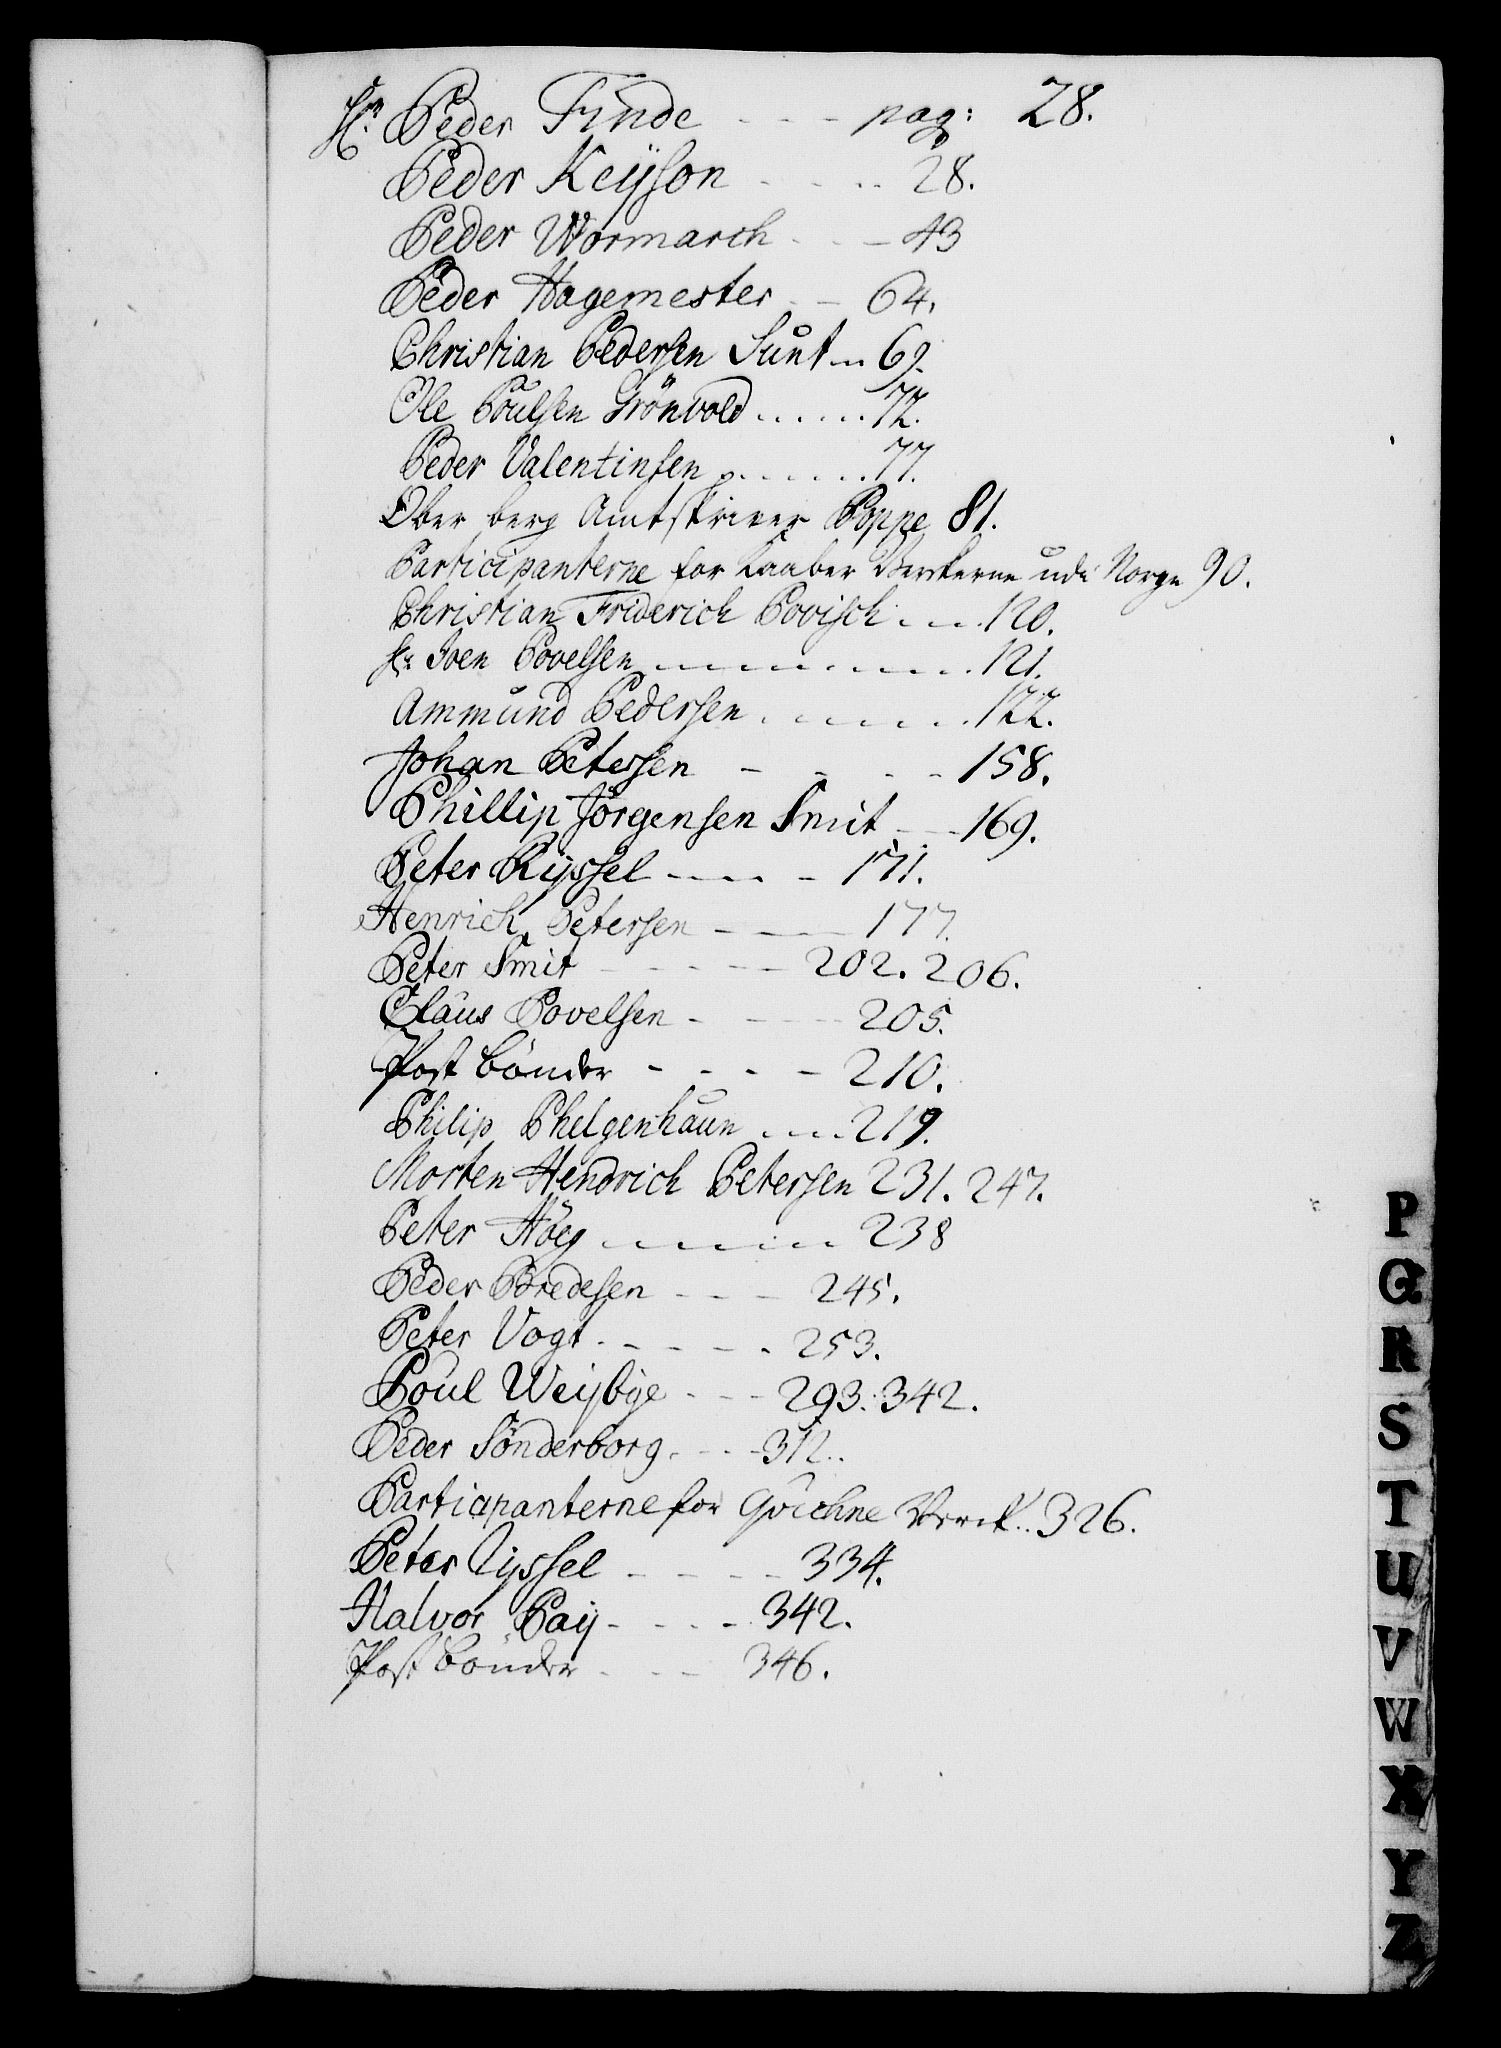 Hr. Peder Finde - - - pag: 28.
Peder Keÿson - - - - 28.
Peder Wormarch - - - 43
Peder Hagemester - - 64.
Christian Pedersen Sunt - - 69.
Ole Poulsen Grönvold . . . . . . 72.
Peder Valentinsen . . . . . . . 77.
Ober berg Amtskriver Poppe 81.
Participanterne for Kaaber Verckerne udi Norge 90.
Christian Friderich Povisch . . . . 120.
Hr: Joen Povelsen - - - - - - - 121.
Ammund Pedersen . . . . . . . 122.
Johan Petersen - - - - 158.
Phillip Jörgensen Smit - - 169.
Peter Rÿssel - - - - 171.
Henrich Petersen - - - 177.
Peter Smit - - - - - 202. 206.
Claus Povelsen - - - - 205.
Post bönder - - - - 210.
Philip Phelgenhaun . . . . 219.
Morten Hendrich Petersen 231. 247.
Peter Höeg - - - - - - 238
Peder Bredesen - - - 245.
Peter Vogt - - - - - 253.
Poul Weÿbÿe - - - 293. 342.
Peder Sönderborg - - - 312.
Participanterne for Qvichne Verck . . 326.
Peter Ÿssel - - - - - 334.
Halvor Paÿ - - - - 342.
Post bönder - - - 346.
P
Q
R
S
T
U
V
W
X
Y
Z